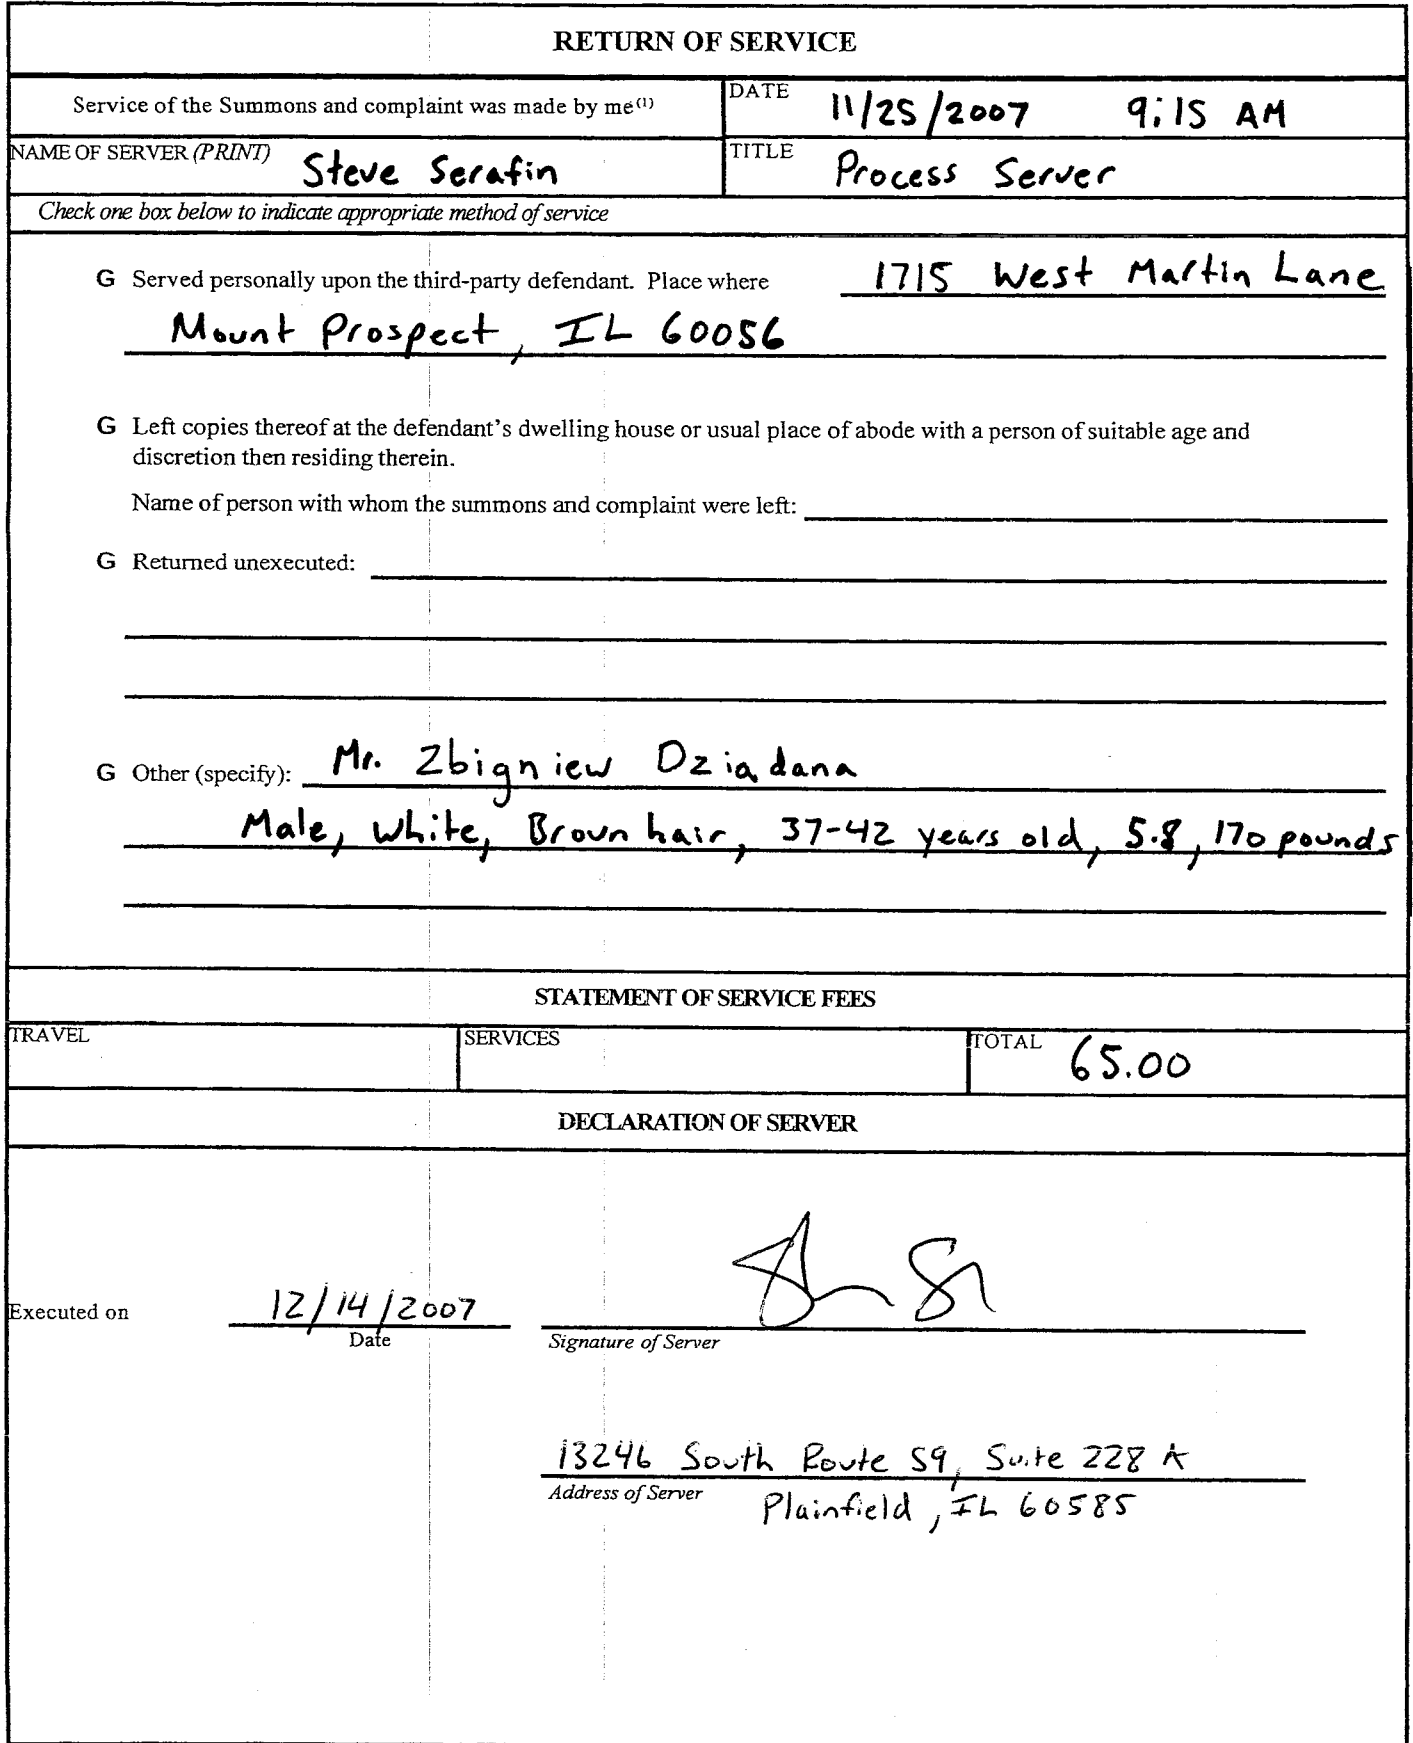 RETURN OF SERVICE
Service of the Summons and complaint was made by me(1) DATE 11/25/2007 9:15 AM
NAME OF SERVER (PRINT) Steve Serafin TITLE Process Server
Check one box below to indicate appropriate method of service
G Served personally upon the third-party defendant. Place where 1715 West Martin Lane
Mount Prospect, IL 60056
G Left copies thereof at the defendant's dwelling house or usual place of abode with a person of suitable age and
discretion then residing therein.
Name of person with whom the summons and complaint were left:
G Returned unexecuted:
G Other (specify): Mr. Zbigniew Dziadana
Male, white, Brown hair, 37-42 years old, 5.8, 170 pounds
STATEMENT OF SERVICE FEES
TRAVEL SERVICES TOTAL 65.00
DECLARATION OF SERVER
Executed on 12/14/2007
Date Signature of Server
13246 South Route 59, Suite 228 A
Address of Server Plainfield, IL 60585